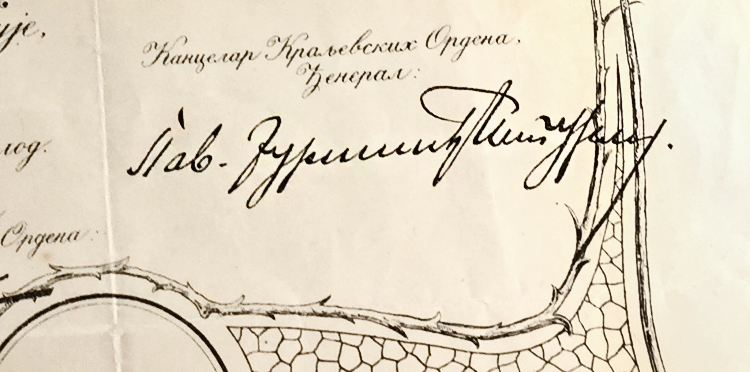 ије,
Канцелар Краљевских Ордена,
Ђенерал:
Пав. Јуришић Штурм.
Ордена: